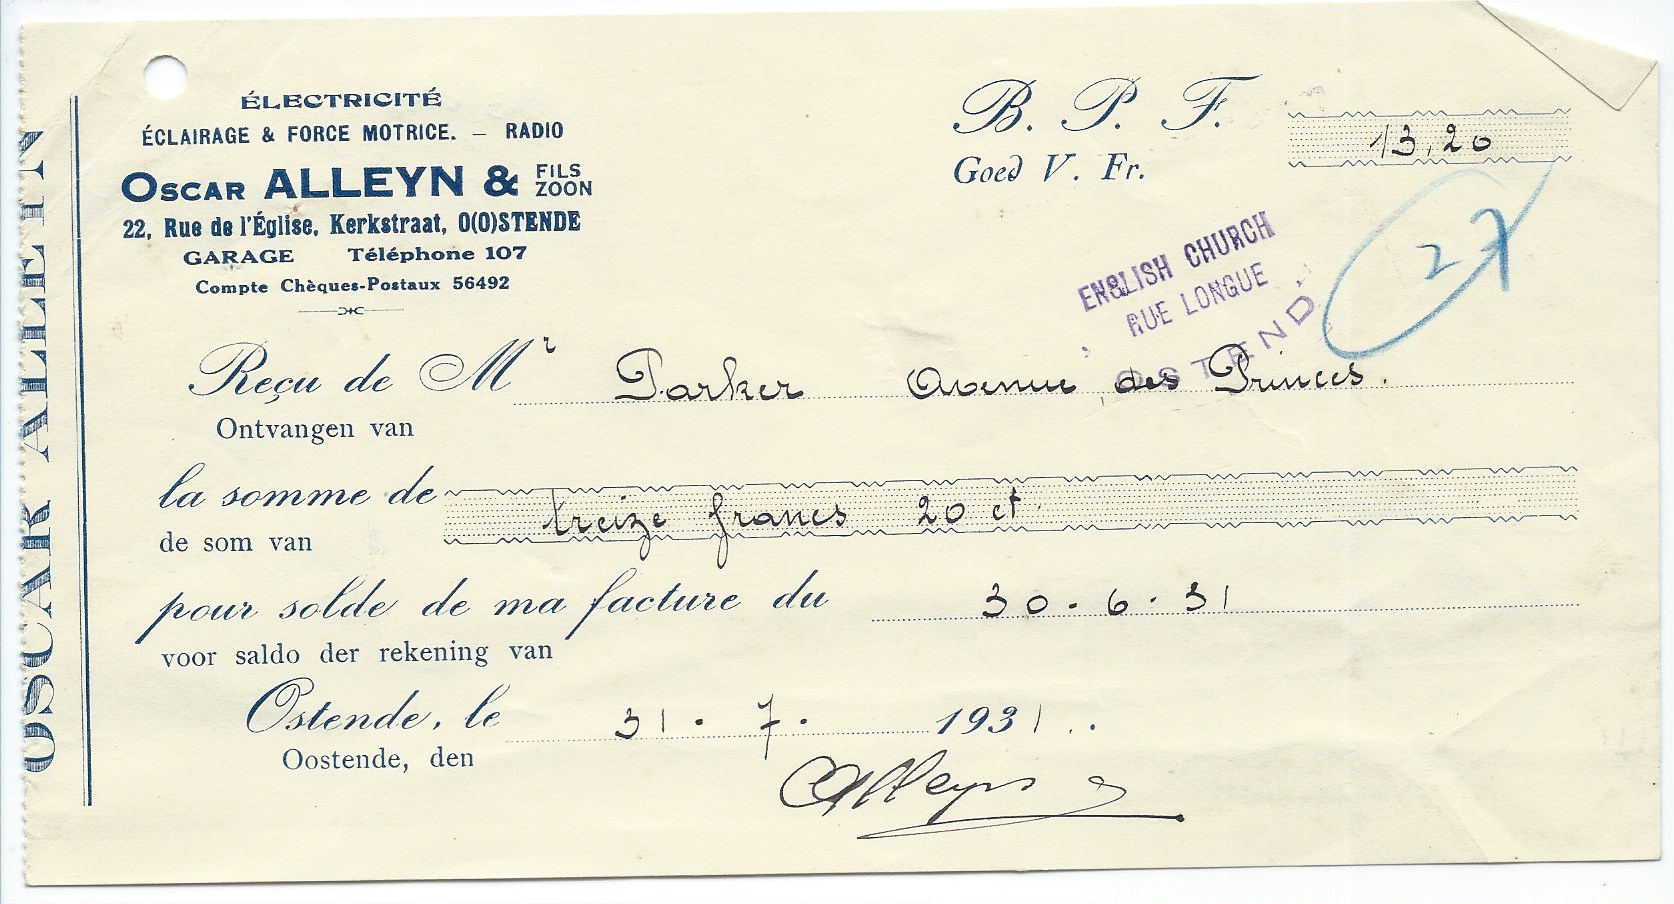 OSCAR ALLEYN
ÉLECTRICITÉ
ÉCLAIRAGE & FORCE MOTRICE. — RADIO
OSCAR ALLEYN & FILS ZOON
22, Rue de l'Église, Kerkstraat, O(O)STENDE
GARAGE Téléphone 107
Compte Chèques-Postaux 56492
B. P. F. 13,20
Goed V. Fr.
27
ENGLISH CHURCH
RUE LONGUE
OSTEND
Reçu de Mr Parker Avenue des Princes.
Ontvangen van
la somme de treize francs 20 ct.
de som van
pour solde de ma facture du 30-6-31
voor saldo der rekening van
Ostende, le 31.7.1931.
Oostende, den
Alleyn